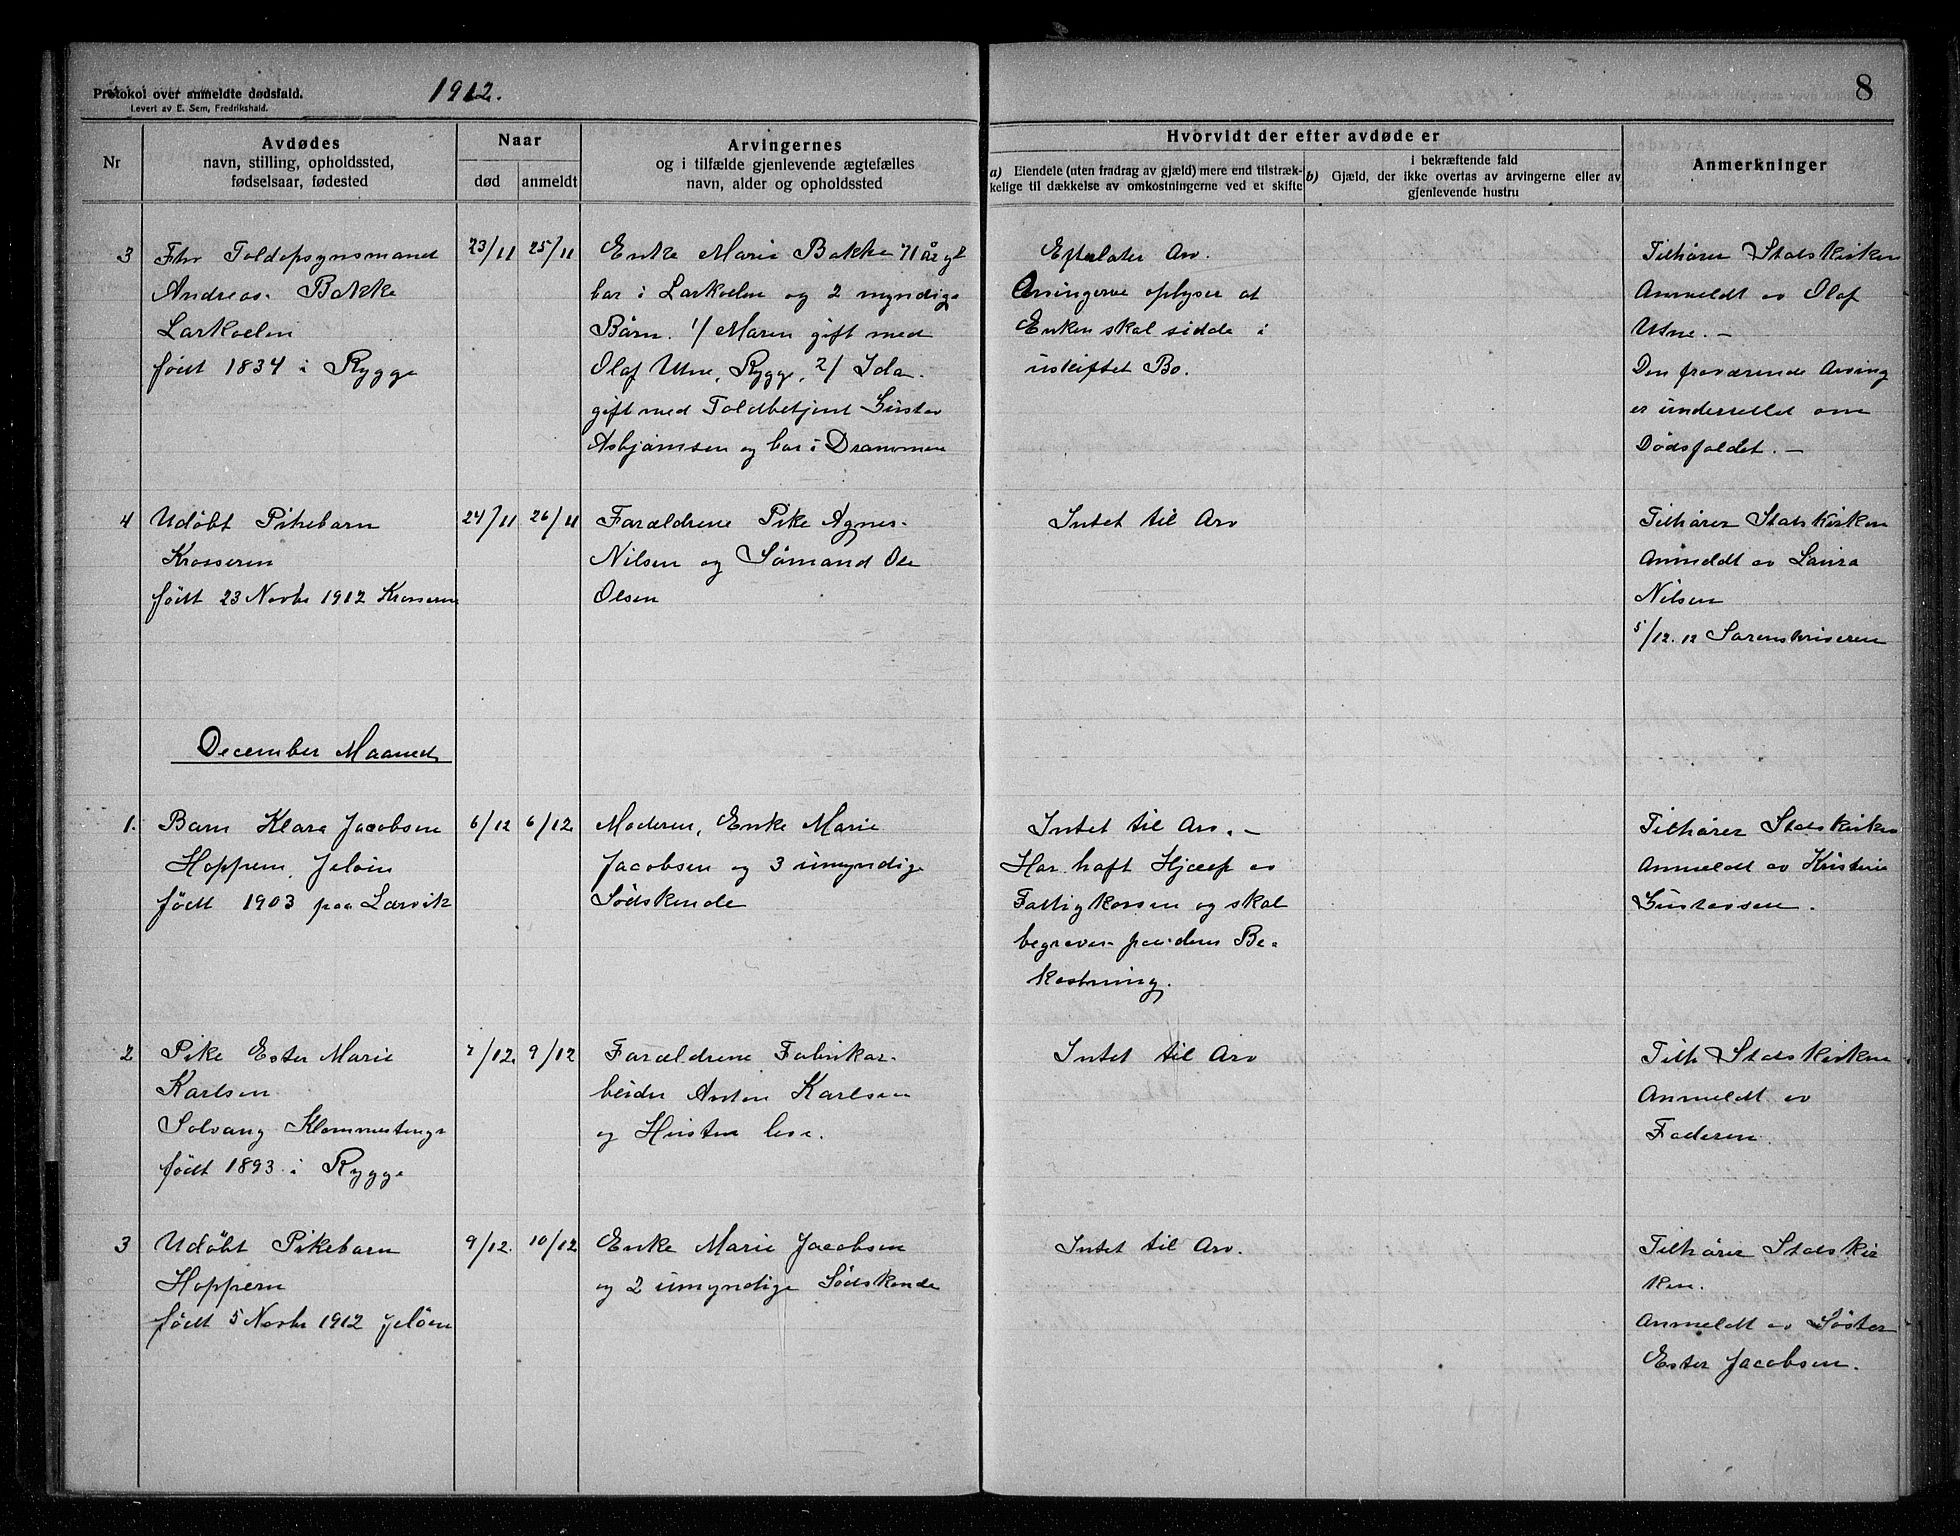 Protokol over anmeldte dødsfald.
Levert av E. Sem, Fredrikshald.
1912.
8
Nr
Avdødes
navn, stilling, opholdssted,
fødselsaar, fødested
Naar
død
anmeldt
Arvingernes
og i tilfælde gjenlevende ægtefælles
navn, alder og opholdssted
Hvorvidt der efter avdøde er
a) Eiendele (uten fradrag av gjæld) mere end tilstræk-
kelige til dækkelse av omkostningerne ved et skifte
b) i bekræftende fald
Gjæld, der ikke overtas av arvingerne eller av
gjenlevende hustru
Anmerkninger
3
Fhv Toldopsynsmand
Andreas Bakke
Larkolen
født 1834 i Rygge
23/11
25/11
Enke Marie Bakke 71 år gl
bor i Larkolen og 2 myndige
Børn. 1/ Maren gift med
Olaf Utne, Rygge, 2/ Ida
gift med Toldbetjent Gustav
Asbjørnsen og bor i Drammen
Efterlater Arv.
Arvingerne oplyser at
Enken skal sidde i
uskiftet Bo.
Tilhører Statskirken
Anmeldt av Olaf
Utne. —
Den fraværende Arving
er underrettet om
Dødsfaldet. —
4
Udøbt Pikebarn
Krosseren
født 23 Novbr 1912 Krosseren
24/11
26/11
Forældrene Pike Agnes
Nilsen og Sømand Ole
Olsen
Intet til Arv
Tilhører Statskirken
Anmeldt av Laura
Nilsen
5/12.12 Sorenskriveren
December Maaned
1.
Barn Klara Jacobsen
Hoppern, Jeløin
født 1903 paa Larvik
6/12
6/12
Moderen, Enke Marie
Jacobsen og 3 umyndige
Sødskende
Intet til Arv. —
Har haft Hjælp av
Fattigkassen og skal
begraves paa dens Be-
kostning.
Tilhører Statskirken
Anmeldt av Kristine
Gustavsen.
2
Pike Ester Marie
Karlsen
Solvang Klommestengs
født 1893 i Rygge
7/12.
9/12
Forældrene Fabrikar-
beider Anton Karlsen
og Hustru
Intet til Arv
Tilh Statskirken
Anmeldt av
Faderen.
3
Udøbt Pikebarn
Hoppern
født 5 Novbr 1912 Jeløen
9/12.
10/12
Enke Marie Jacobsen
og 2 umyndige Sødskende
Intet til Arv.
Tilhører Statskir
ken.
Anmeldt av Søster
Ester Jacobsen.